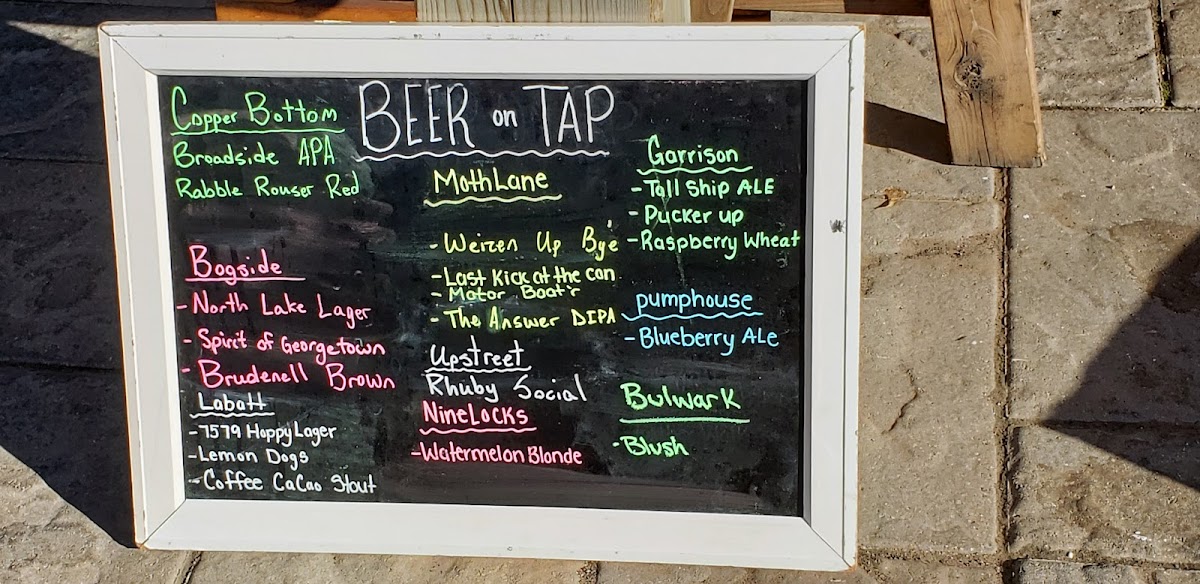 BEER on TAP
Copper Bottom
Broadside APA
Rabble Rouser Red
Bogside
- North Lake Lager
- Spirit of Georgetown
- Brudenell Brown
Labatt
- 7579 Hoppy Lager
- Lemon Dogs
- Coffee CaCao Stout
MothLane
- Weizen Up Bye
- Last Kick at the can
- Motor Boat'r
- The Answer DIPA
Upstreet
Rhuby Social
NineLocks
- Watermelon Blonde
Garrison
- Tall Ship ALE
- Pucker up
- Raspberry Wheat
pumphouse
- Blueberry Ale
Bulwark
- Blush